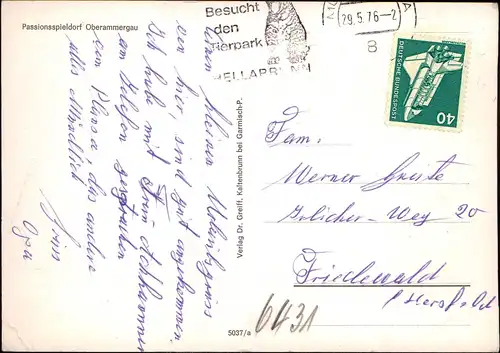 Passionsspieldorf Oberammergau
Besucht
den
Tierpark
HELLABRUNN
29.5.76-2
8
DEUTSCHE BUNDESPOST
40
einen kleinen Urlaubsgruss
von hier, sind gut angekommen.
Ich habe mit Frau
am Telefon gesprochen
das andere
alles Mündlich
Opa
Verlag Dr. Greiff, Kaltenbrunn bei Garmisch-P.
5037/a
Fam.
Werner
Weg 20
Friedewald
6431